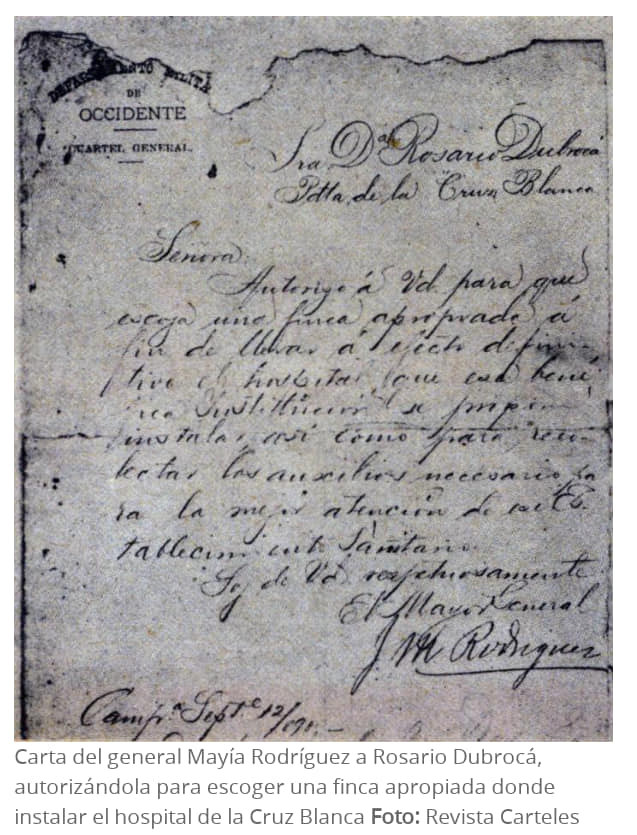 DEPARTAMENTO MILITA
DE
OCCIDENTE
CUARTEL GENERAL.
Sra Dª Rosario Dubrocá
Pdta de la Cruz Blanca
Señora
Autorizo á Vd. para que
escoja una finca apropiada á
fin de llevar á efecto defini-
tivo el hospital que esa bené
fica Institución se propone
instalar, así como para reco-
lectar los auxilios necesarios pa
ra la mejor atención de ese Es-
tablecimiento Sanitario.
Soy de Vd. respetuosamente
El Mayor General
J. M Rodriguez
Campª Septe 12/
Carta del general Mayía Rodríguez a Rosario Dubrocá,
autorizándola para escoger una finca apropiada donde
instalar el hospital de la Cruz Blanca Foto: Revista Carteles